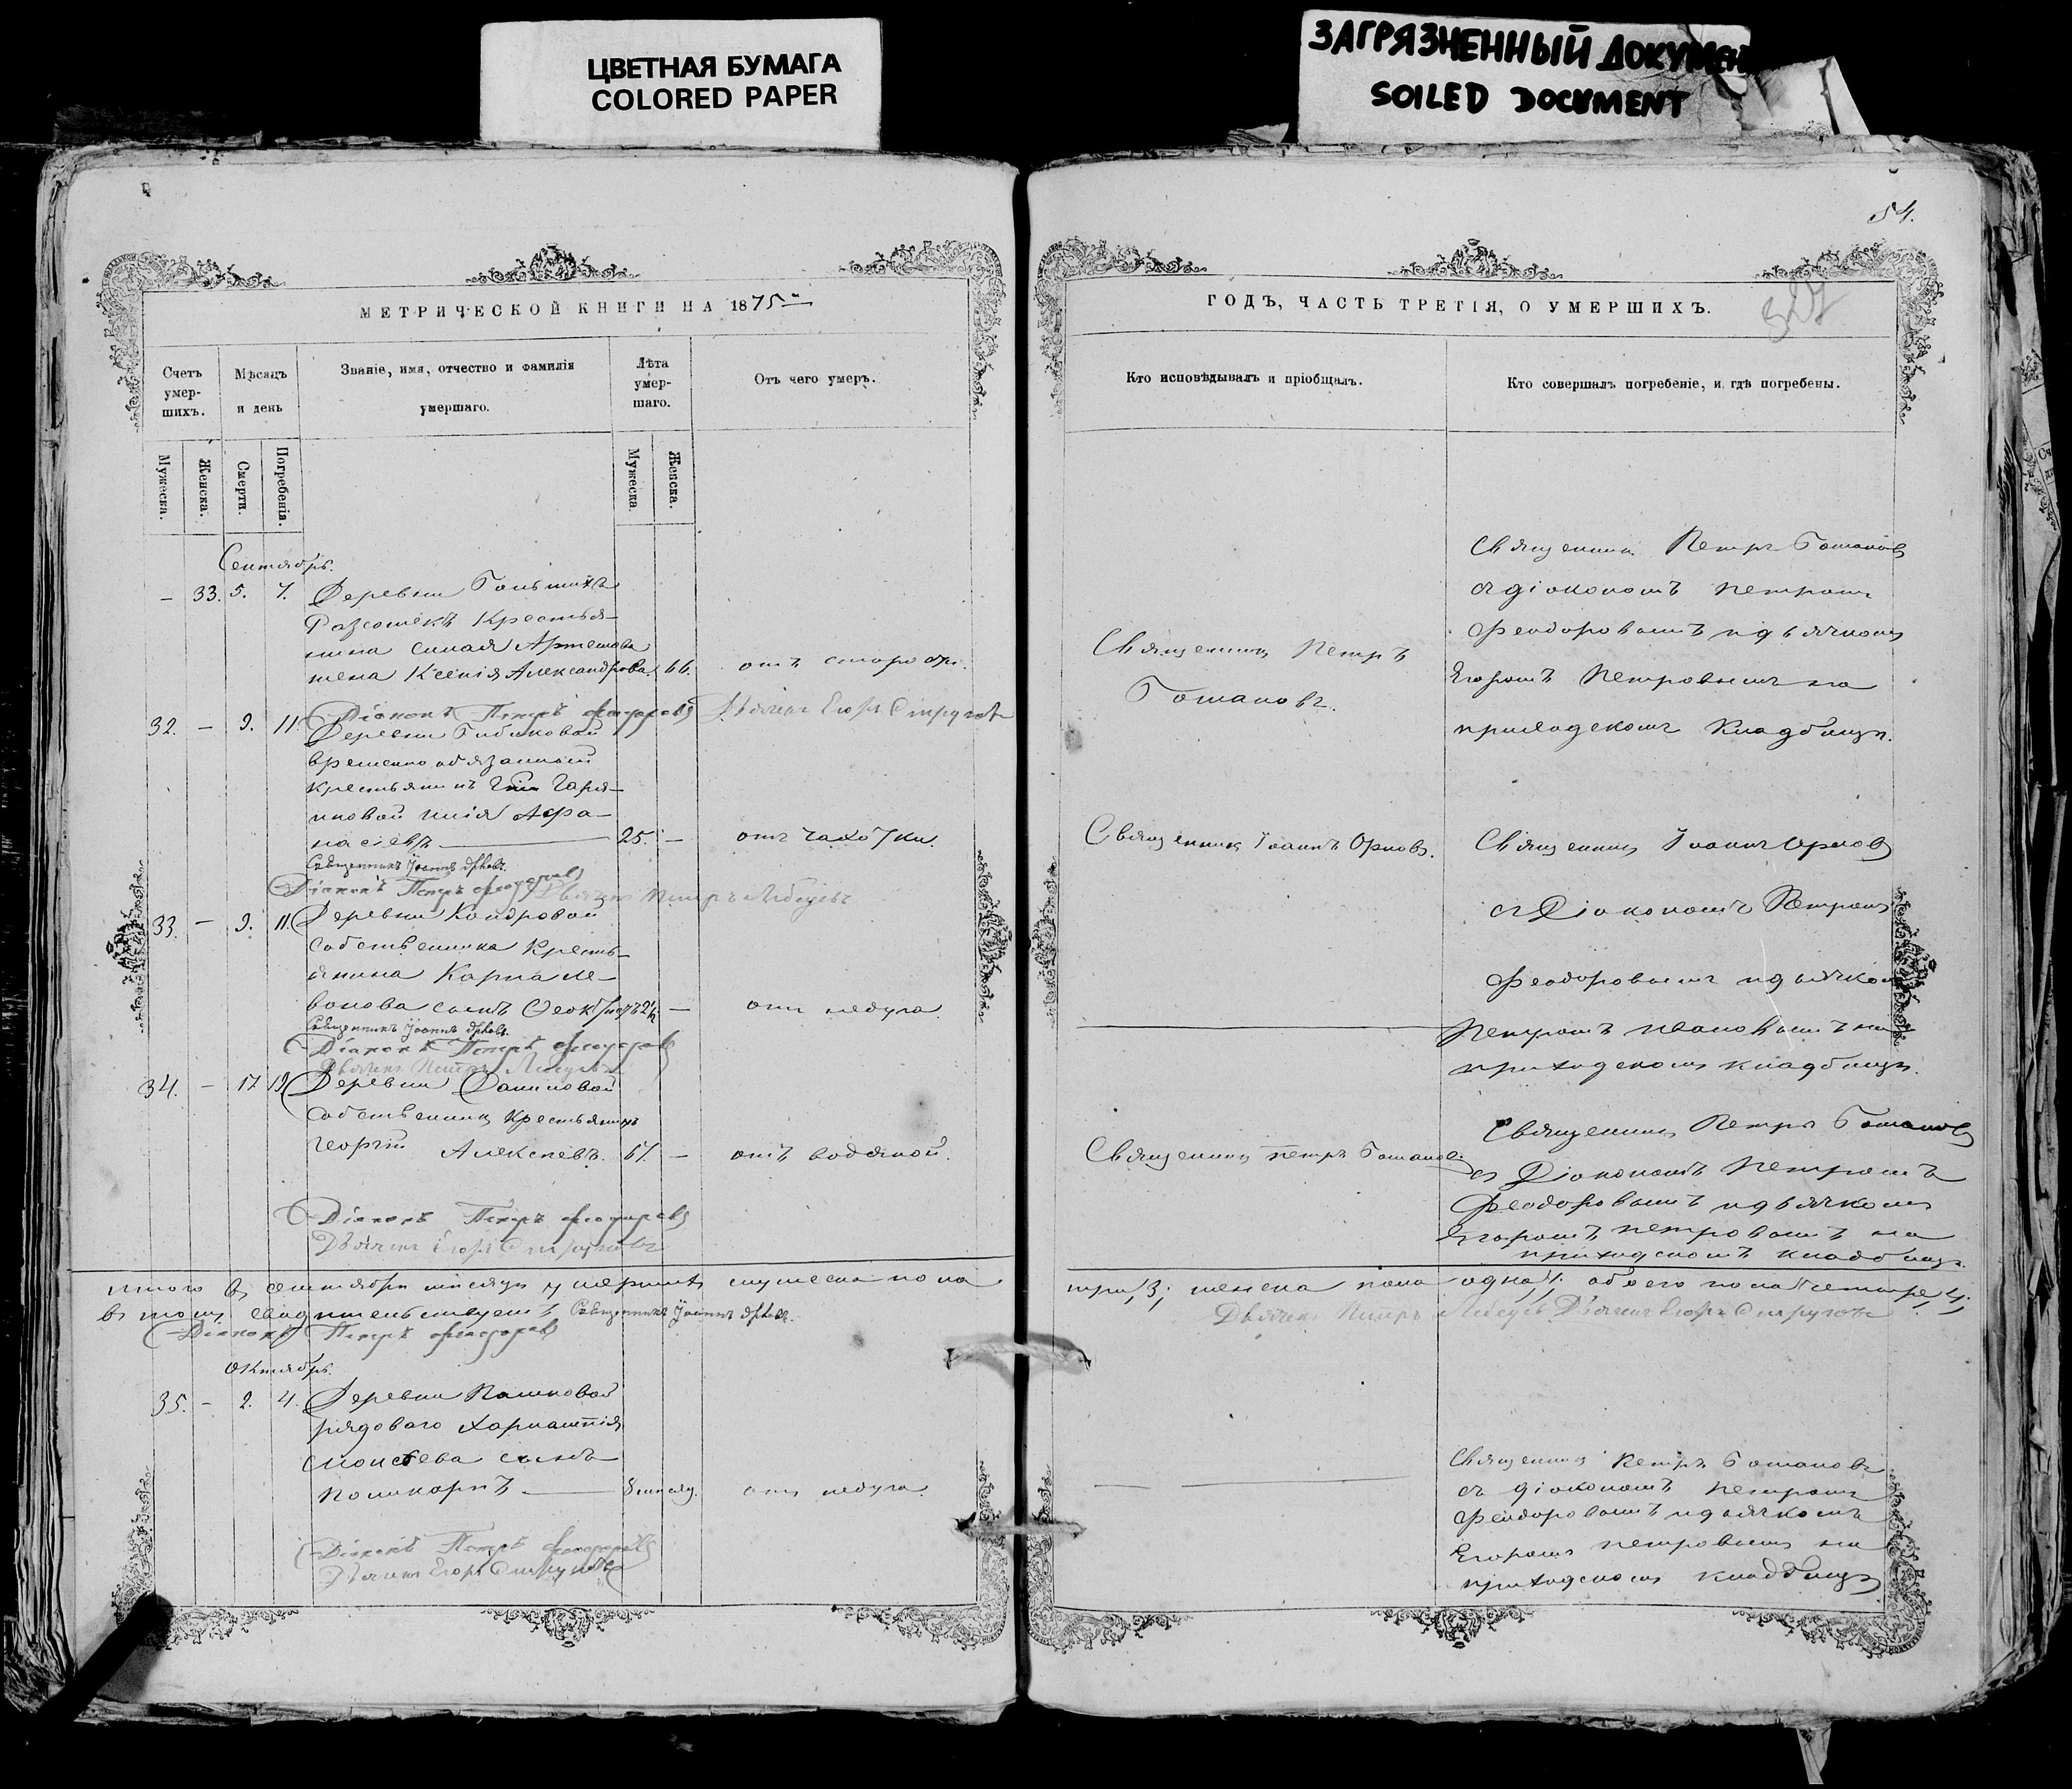 ЦВЕТНАЯ БУМАГА
COLORED PAPER
ЗАГРЯЗНЕННЫЙ ДОКУМЕН
SOILED DOCUMENT
54.
МЕТРИЧЕСКОЙ КНИГИ НА 1875
Счетъ умер-шихъ.
Мѣсяцъ и день
Званіе, имя, отчество и фамилія умершаго.
Лѣта умер-шаго.
Отъ чего умеръ.
Мужеска.
Женска.
Смерти.
Погребенія.
Мужеска.
Женска.
Сентябрь.
– 33. 5. 7. Деревни
Крестья-
нина Артемова
жена Ксенія Александрова 66. отъ старости.
Діаконъ Петръ Феодоровъ Дьячекъ Егоръ Струговъ
32. – 9. 11. Деревни Гибиковой
временно обязанный
крестьянинъ
Афа-
насіевъ 25. – отъ чахотки.
Священникъ Іоаннъ Орловъ.
Діаконъ Петръ Феодоровъ Дьячекъ Петръ Лебедевъ
33. – 9. 11. Деревни Кондровой
собственника Кресть-
янина Карпа Ле-
онова сынъ – отъ недуга.
Священникъ Іоаннъ Орловъ.
Діаконъ Петръ Феодоровъ
Дьячекъ Петръ Лебедевъ
34. – 17 19. Деревни Даниловой
собственникъ Крестьянинъ
Георгій Алексѣевъ. 61. – отъ водяной.
Діаконъ Петръ Феодоровъ
Дьячекъ Егоръ Струговъ
Итого въ сентябрѣ мѣсяцѣ умершихъ мужеска пола
въ томъ свидѣтельствуемъ Священникъ Іоаннъ Орловъ.
Діаконъ Петръ Феодоровъ
Октябрь.
35. – 2. 4. Деревни Пашковой
рядоваго Харлампія
Моисѣева сынъ
Поликарпъ 8 мѣсяц. отъ недуга.
Діаконъ Петръ Феодоровъ
Дьячекъ Егоръ Струговъ
ГОДЪ, ЧАСТЬ ТРЕТІЯ, О УМЕРШИХЪ.
Кто исповѣдывалъ и пріобщалъ.
Кто совершалъ погребеніе, и гдѣ погребены.
Священникъ Петръ
Готановъ.
Священникъ Петръ Готановъ
съ діакономъ Петромъ
Феодоровымъ и дьячкомъ
Егоромъ Петровымъ на
приходскомъ кладбищѣ.
Священникъ Іоаннъ Орловъ.
Священникъ Іоаннъ Орловъ
съ Діакономъ Петромъ
Феодоровымъ и дьячком
Петромъ Ивановымъ на
приходскомъ кладбищѣ.
Священникъ Петръ Готановъ.
Священникъ Петръ Готановъ
съ Діакономъ Петромъ
Феодоровымъ и дьячкомъ
Егоромъ Петровымъ на
приходскомъ кладбищѣ.
три, 3; женска пола одна, 1. обоего пола четыре, 4;
Дьячекъ Петръ Лебедевъ Дьячекъ Егоръ Струговъ
Священникъ Петръ Готановъ
съ діакономъ Петромъ
Феодоровымъ и дьячкомъ
Егоромъ Петровымъ на
приходскомъ кладбищѣ